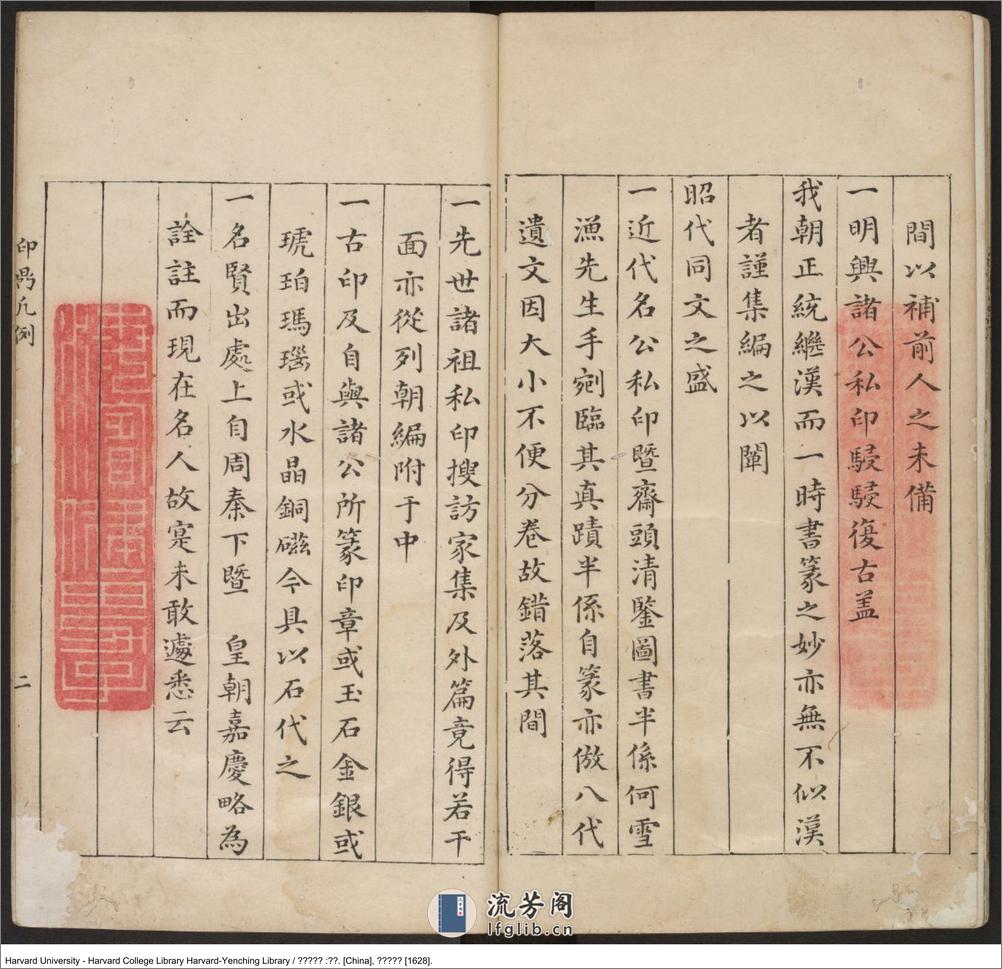 間以補前人之未備
一明興諸公私印駸駸復古盖
我朝正統繼漢而一時書篆之妙亦無不似漢
者謹集編之以闡
昭代同文之盛
一近代名公私印暨齋頭清鑒圖書半係何雪
漁先生手剜臨其真蹟半係自篆亦倣八代
遺文因大小不便分卷故錯落其間
一先世諸祖私印搜訪家集及外篇竟得若干
面亦從列朝編附于中
一古印及自與諸公所篆印章或玉石金銀或
琥珀瑪瑙或水晶銅磁今具以石代之
一名賢出處上自周秦下暨 皇朝嘉慶略為
詮註而現在名人故寔未敢遽悉云
凡例
二
流芳阁
lfglib.cn
Harvard University - Harvard College Library Harvard-Yenching Library / ????? :??. [China], ????? [1628].